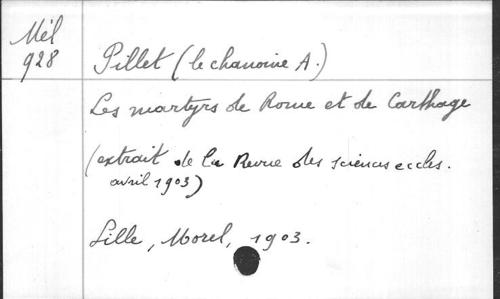 Mél
928
Pillet (le chanoine A.)
Les martyrs de Rome et de Carthage
(extrait de la Revue des sciences eccles.
avril 1903)
Lille, Morel, 1903.